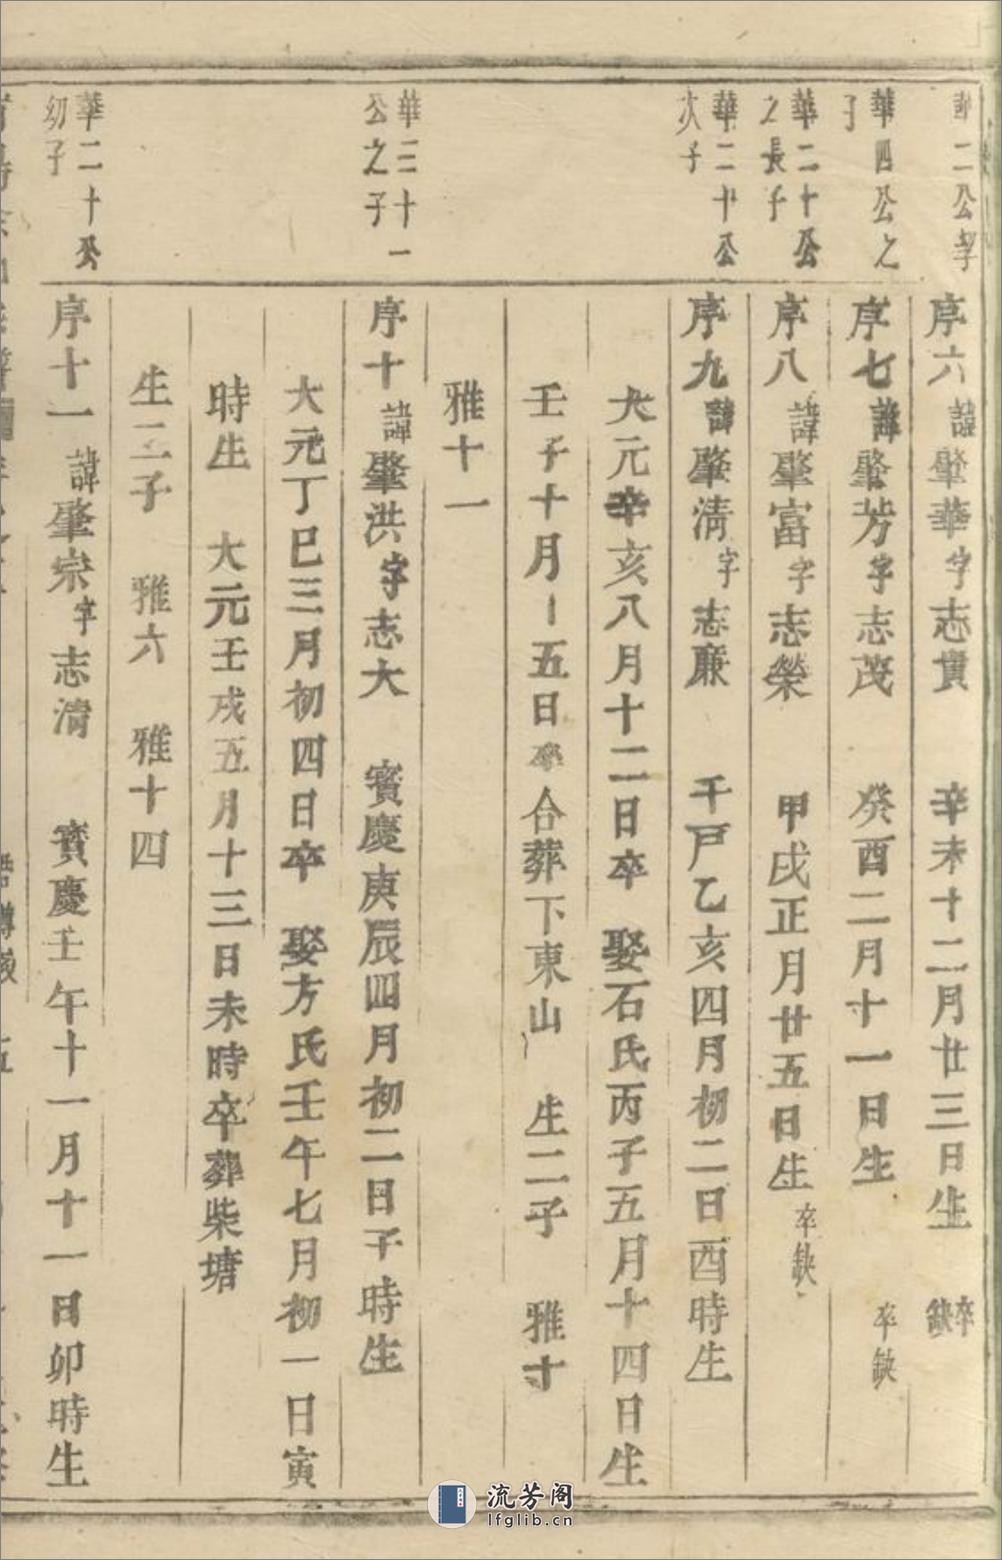 華二公子
序六 諱肇華字志實 辛未十二月廿三日生 卒缺
華四公之子
序七 諱肇芳字志茂 癸酉二月十一日生 卒缺
華二十公之長子
序八 諱肇富字志榮 甲戌正月廿五日生 卒缺
華二十公次子
序九 諱肇清字志廉 千戸乙亥四月初二日酉時生
大元辛亥八月十二日卒 娶石氏丙子五月十四日生
壬子十月十五日卒合葬下東山 生二子 雅十
雅十一
華三十一公之子
序十 諱肇洪字志大 寳慶庚辰四月初二日子時生
大元丁巳三月初四日卒 娶方氏壬午七月初一日寅
時生 大元壬戌五月十三日未時卒葬柴塘
生二子 雅六 雅十四
華二十公幼子
序十一 諱肇崇字志清 寳慶壬午十一月十一日卯時生
流芳阁
lfglib.cn